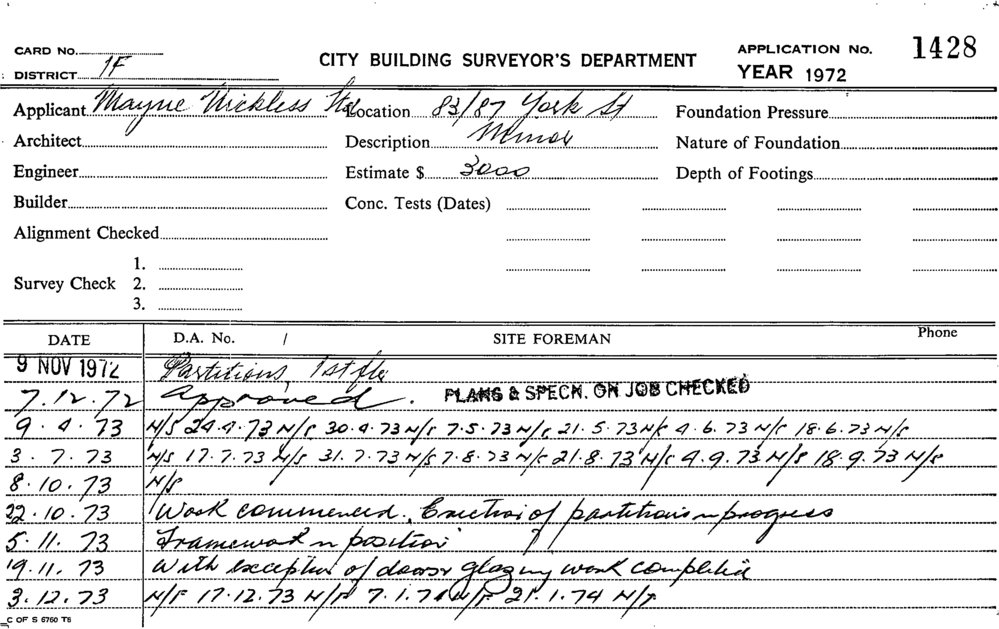 CARD No. CITY BUILDING SURVEYOR'S DEPARTMENT APPLICATION No. 1428
DISTRICT 1F YEAR 1972
Applicant Mayne Nickless Ltd Location 83/87 York St Foundation Pressure
Architect Description Minor Nature of Foundation
Engineer Estimate $ 3000 Depth of Footings
Builder Conc. Tests (Dates)
Alignment Checked
1.
Survey Check 2.
3.
DATE D.A. No. / SITE FOREMAN Phone
9 NOV 1972 Partitions, 1st flr
7.12.72 Approved. PLANS & SPECN. ON JOB CHECKED
9.4.73 N/S 24.4.73 N/S 30.4.73 N/S 7.5.73 N/S 21.5.73 N/S 4.6.73 N/S 18.6.73 N/S
3.7.73 N/S 17.7.73 N/S 31.7.73 N/S 7.8.73 N/S 21.8.73 N/S 4.9.73 N/S 18.9.73 N/S
8.10.73 N/S
22.10.73 Work commenced. Erection of partitions in progress
5.11.73 Framework in position
19.11.73 With exception of doors & glazing work completed
3.12.73 N/S 17.12.73 N/S 7.1.74 N/S 21.1.74 N/S
C OF S 6760 T6